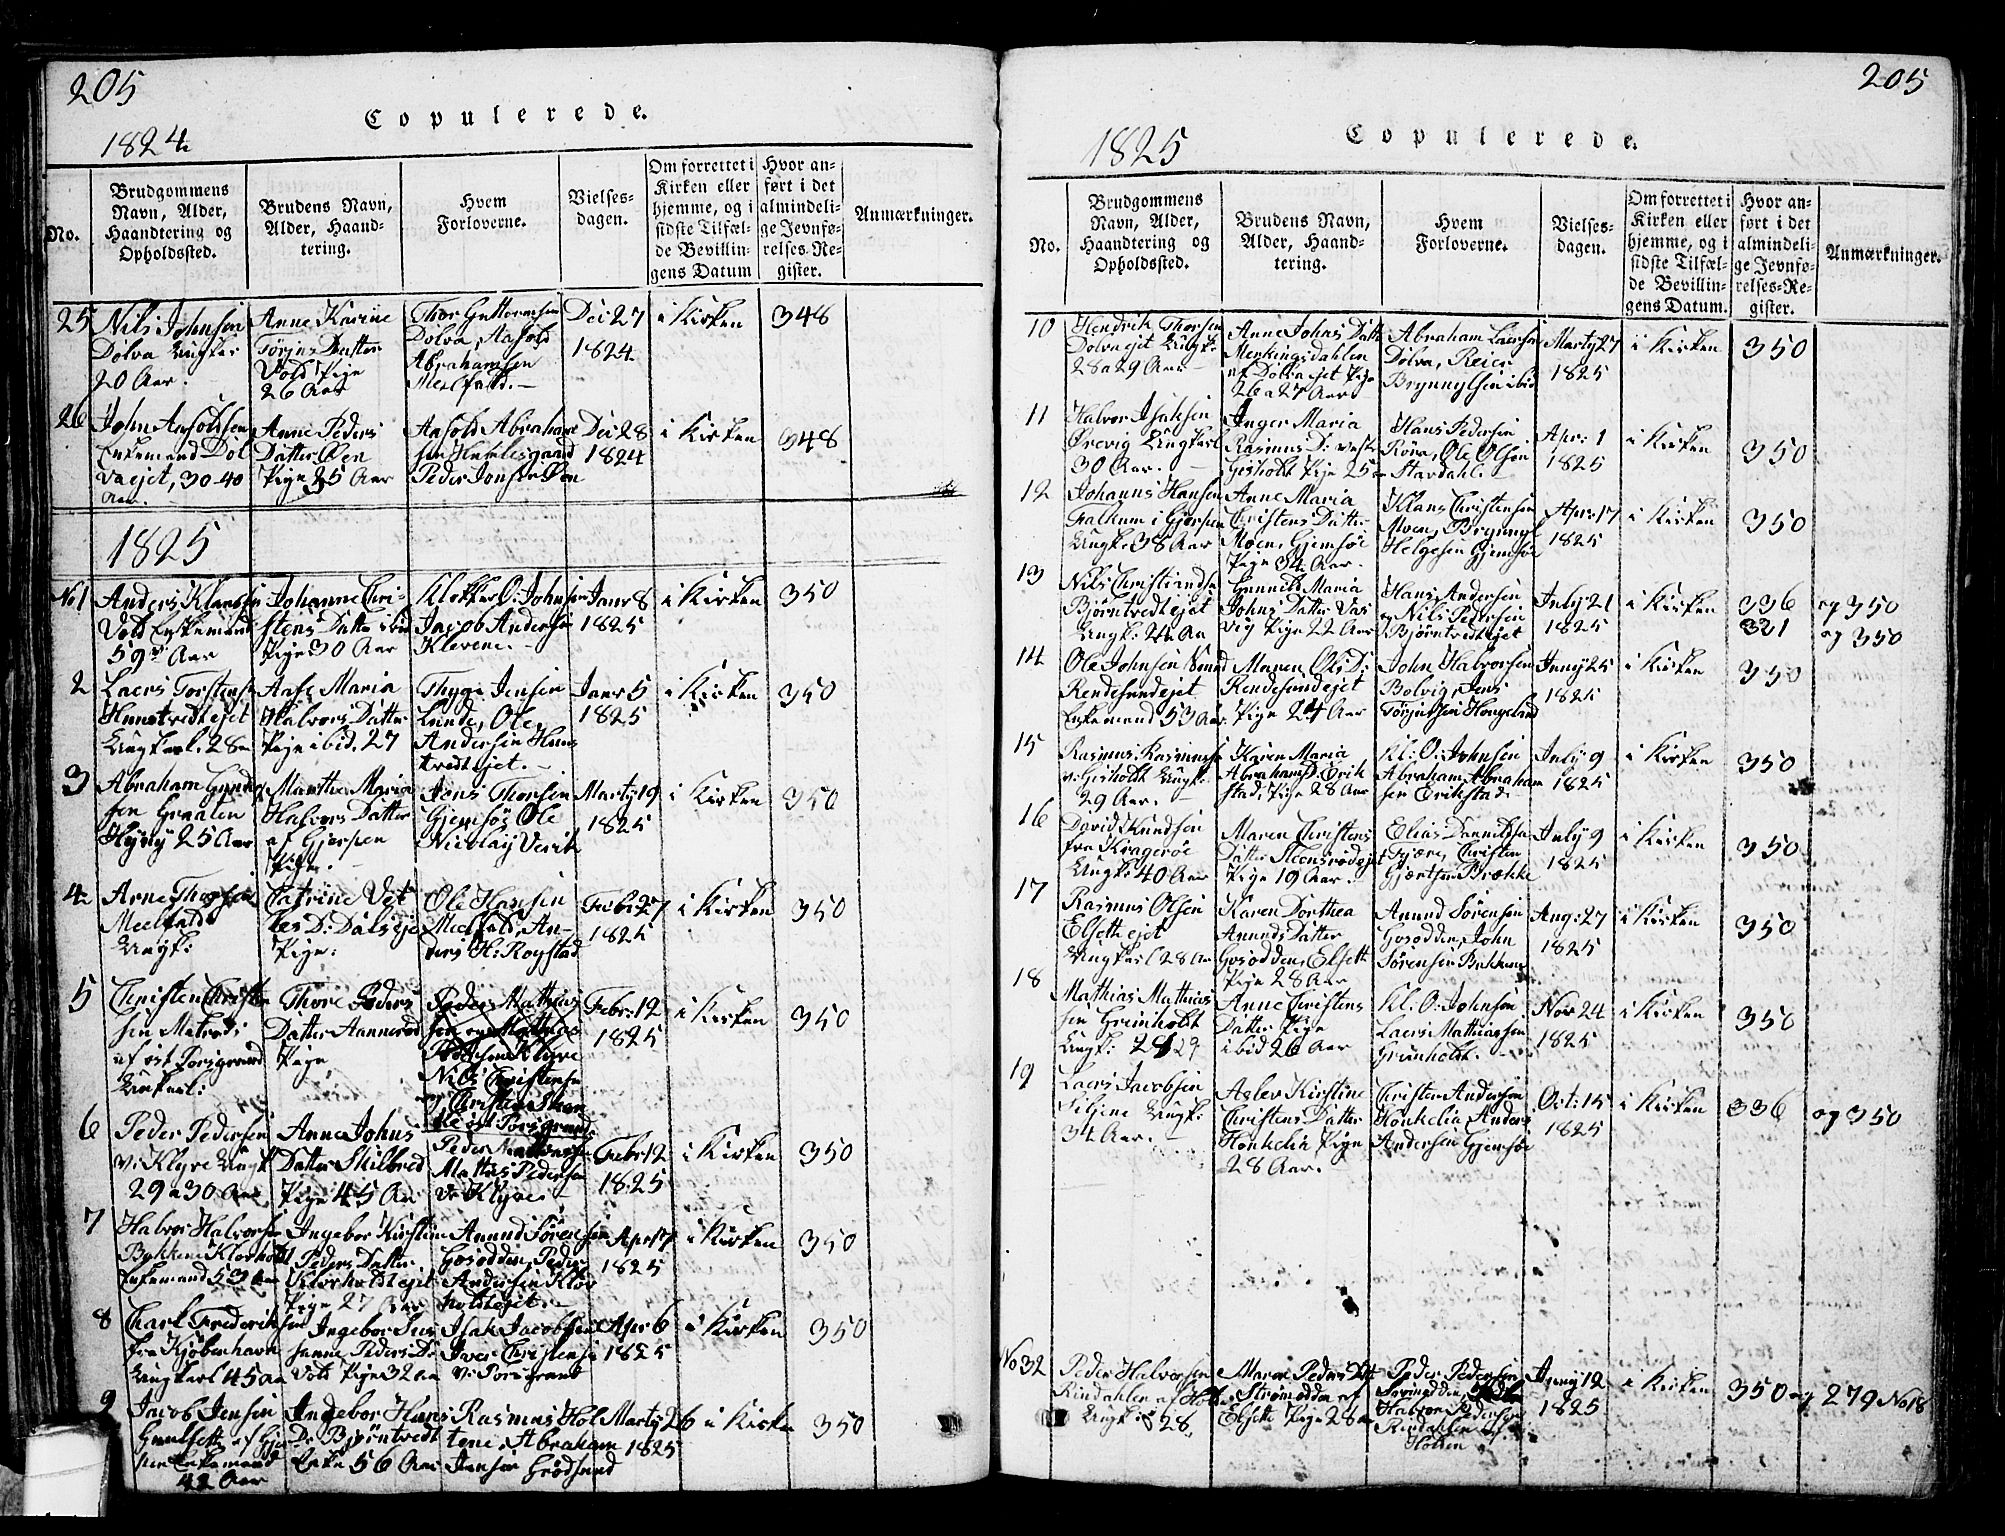 205
Copulerede.
1824
No.
Brudgommens
Navn, Alder,
Haandtering og
Opholdssted.
Brudens Navn,
Alder, Haand-
tering.
Hvem
Forloverne.
Vielses-
dagen.
Om forrettet i
Kirken eller
hjemme, og i
sidste Tilfæl-
de Bevillin-
gens Datum
Hvor an-
ført i det
almindeli-
ge Jevnfø-
relses-Re-
gister.
Anmærkninger.
25
Nils Johnsen
Dolva Ungkar
20 Aar.
Anne Karine
Torjus Datter
Vold Pige
26 Aar
Thor Guttormsen
Dolva, Aasold
Abrahamsen
Melfald.
Dec 27
1824
i Kirken
348
26
John Aasoldsen
Enkemand Dol
vaejet, 30-40
Aar.
Anne Peders
Datter Øen
Pige 25 Aar
Aasold Abraham
sen
Peder Jonsen Øen
Dec 28
1824
i Kirken
348
1825
No 1
Anders Klausen
Vold Enkemand
59 Aar
Johanne Chri-
stens Datter ibid
Pige 30 Aar
Klokker O: Johnsen
Jacob Andersen
Klevene.
Janr 8
1825
i Kirken
350
2
Laers Torstens
Hunstvedtejet
Ungkarl. 28
Aase Maria
Halvors Datter
Pige ibid. 27
Thyge Jensen
Lunde, Ole
Andersen Huns
tvedtejet.
Janr 5
1825
i Kirken
350
3
Abraham Gunder
sen Graaten
25 Aar
Marthe Maria
Halvors Datter
af Gjerpen
Pige.
Jens Thorsen
Gjemsøe Ole
Nicolay Verik
Marty 19
1825
i Kirken
350
4
Arne Thorsen
Meelfald
Ungk:
Catrine
D: Dalseje
Pige:
Ole Hansen
Meelfald, An-
ders H: Roystad
Febr 27
1825
i Kirken
350
5
Christen Christen
sen
af øst Porsgrund
Ungkarl:
Thore Peders
Datter Aannerød
Pige,
Peder Mathias
sen og Mathias
Pedersen Klyve
Nils Christensen
og Christen
øst Porsgrund
Febr: 12
1825
i Kirken
350
6
Peder Pedersen
v: Klyve Ungk
29 a 30 Aar
Anne Johns
Datter Skilbred
Pige 45 Aar
Peder
Mathis Pedersen
v: Klyve.
Febr 12
1825
i Kirken
350
7
Halvor Halvorsen
Bakkene Klovholt
Enkemand 53 Aar
Ingebor Kirstine
Peders Datter
Klovholdtejet
Pige 27 Aar
Anund Sørensen
Gosodden, Peder
Andersen Klov
holdtejet.
Apr 17
1825
i Kirken
350
8
Charl Frederiksen
fra Kjøbenhavn
Ungkarl 45 aar
Ingebor Su
sanne Peders D:
Vold Pige 32 aar
Isak Jacobsen
Iver Christensen
v: Porsgrund
Apr 6
1825
i Kirken
350
9
Jacob Jensen
Gjer
pen Enkemand
42 Aar
Ingebor Hans
D: Bjørntvedt
Enke 56 Aar
Rasmus Hol
tene, Abraham
Jensen Grødsund
Marty 26
1825
i Kirken
350
205
Copulerede.
1825
No.
Brudgommens
Navn, Alder,
Haandtering og
Opholdssted.
Brudens Navn,
Alder, Haand-
tering.
Hvem
Forloverne.
Vielses-
dagen.
Om forrettet i
Kirken eller
hjemme, og i
sidste Tilfæl-
de Bevillin-
gens Datum.
Hvor an-
ført i det
almindeli-
ge Jevnfø-
relses-Re-
gister.
Anmærkninger.
10
Hendrik Thorsen
Dolvaejet Ungk:
28 a 29 Aar
Anne Johns Datt
Menkingsdahlen
af Dolvaejet Pige
26 a 27 Aar
Abraham Laersen
Dolva, Reier
Brynnylsen ibid
Marty 27
1825
i Kirken
350
11
Halvor Isaksen
Ørevig Ungkarl
30 Aar.
Inger Maria
Rasmus D: vestr
Gisholt Pige 25
Hans Pedersen
Røra, Ole Olsen
Stavdahl.
Apr: 1
1825
i Kirken
350
12
Johannes Hansen
Falkum i Gjerpen
Ungk: 38 Aar
Anne Maria
Christens Datter
Moen, Gjemsøe
Pige 34 Aar.
Klaus Christensen
Moen, Brynnyl
Helgesen Gjemsøe
Apr: 17
1825
i Kirken
350
13
Nils Christiansen
Bjørntvedtejet
Ungk: 24 Aar
Gunnild Maria
Johns Datter Vas
vig Pige 22 Aar
Hans Andersen
og Nils Pedersen
Bjørntvedtejet
July 21
1825
i Kirken
336
321
og 350
og 350
14
Ole Johnsen Smed
Rendesundejet
Enkemand 53 Aar.
Maren Ols D:
Rendesundejet
Pige 24 Aar
John Halvorsen
Bolvig, Jens
Torjussen Hougelund
Juny 25
1825
i Kirken
350
15
Rasmus Rasmussen
v: Gisholt Ungk:
29 Aar.
Karen Maria
Abrahams D: Erik
stad, Pige 28 Aar
Kl: O: Johnsen
Abraham Abraham
sen Erikstad.
July 9
1825
i Kirken
350
16
David Knudsen
fra Kragerøe
Ungk: 40 Aar
Maren Christens
Datter Steensrødejet
Pige 19 Aar.
Elias Danielsen
Fjære, Christen
Gjertsen Brække
July 9
1825
i Kirken
350
17
Rasmus Olsen
Elsethejet
Ungkarl 28 Aar
Karen Dorthea
Anunds Datter
Gosodden, Elseth
Pige 28 Aar
Anund Sørensen
Gosodden, John
Sørensen Bakkene
Aug: 27
1825
i Kirken
350
18
Mathias Mathias
sen Grimholdt
Ungk: 28 29
Anne Christens
Datter Pige
ibid 26 Aar
Kl: O: Johnsen
Laers Mathiassen
Grimholdt.
Nov 24
1825
i Kirken
350
19
Laers Jacobsen
Siljene Ungk:
34 Aar.
Aslev Kirstine
Christens Datter
Honkelia Pige
28 Aar.
Christen Andersen
Honkelia, Anders
Andersen Gjemsøe
Oct: 15
1825
i Kirken
336
og 350
No 32
Peder Halvorsen
Rindahlen af Holden
Ungk: 28
Maren Peders Datt
Strømodden af
Elseth Pige 28 aar
Peder Pedersen
Halvor Pedersen
Rindahlen af
Holden
Juny 12
1825
i Kirken
350 og
279 No 18